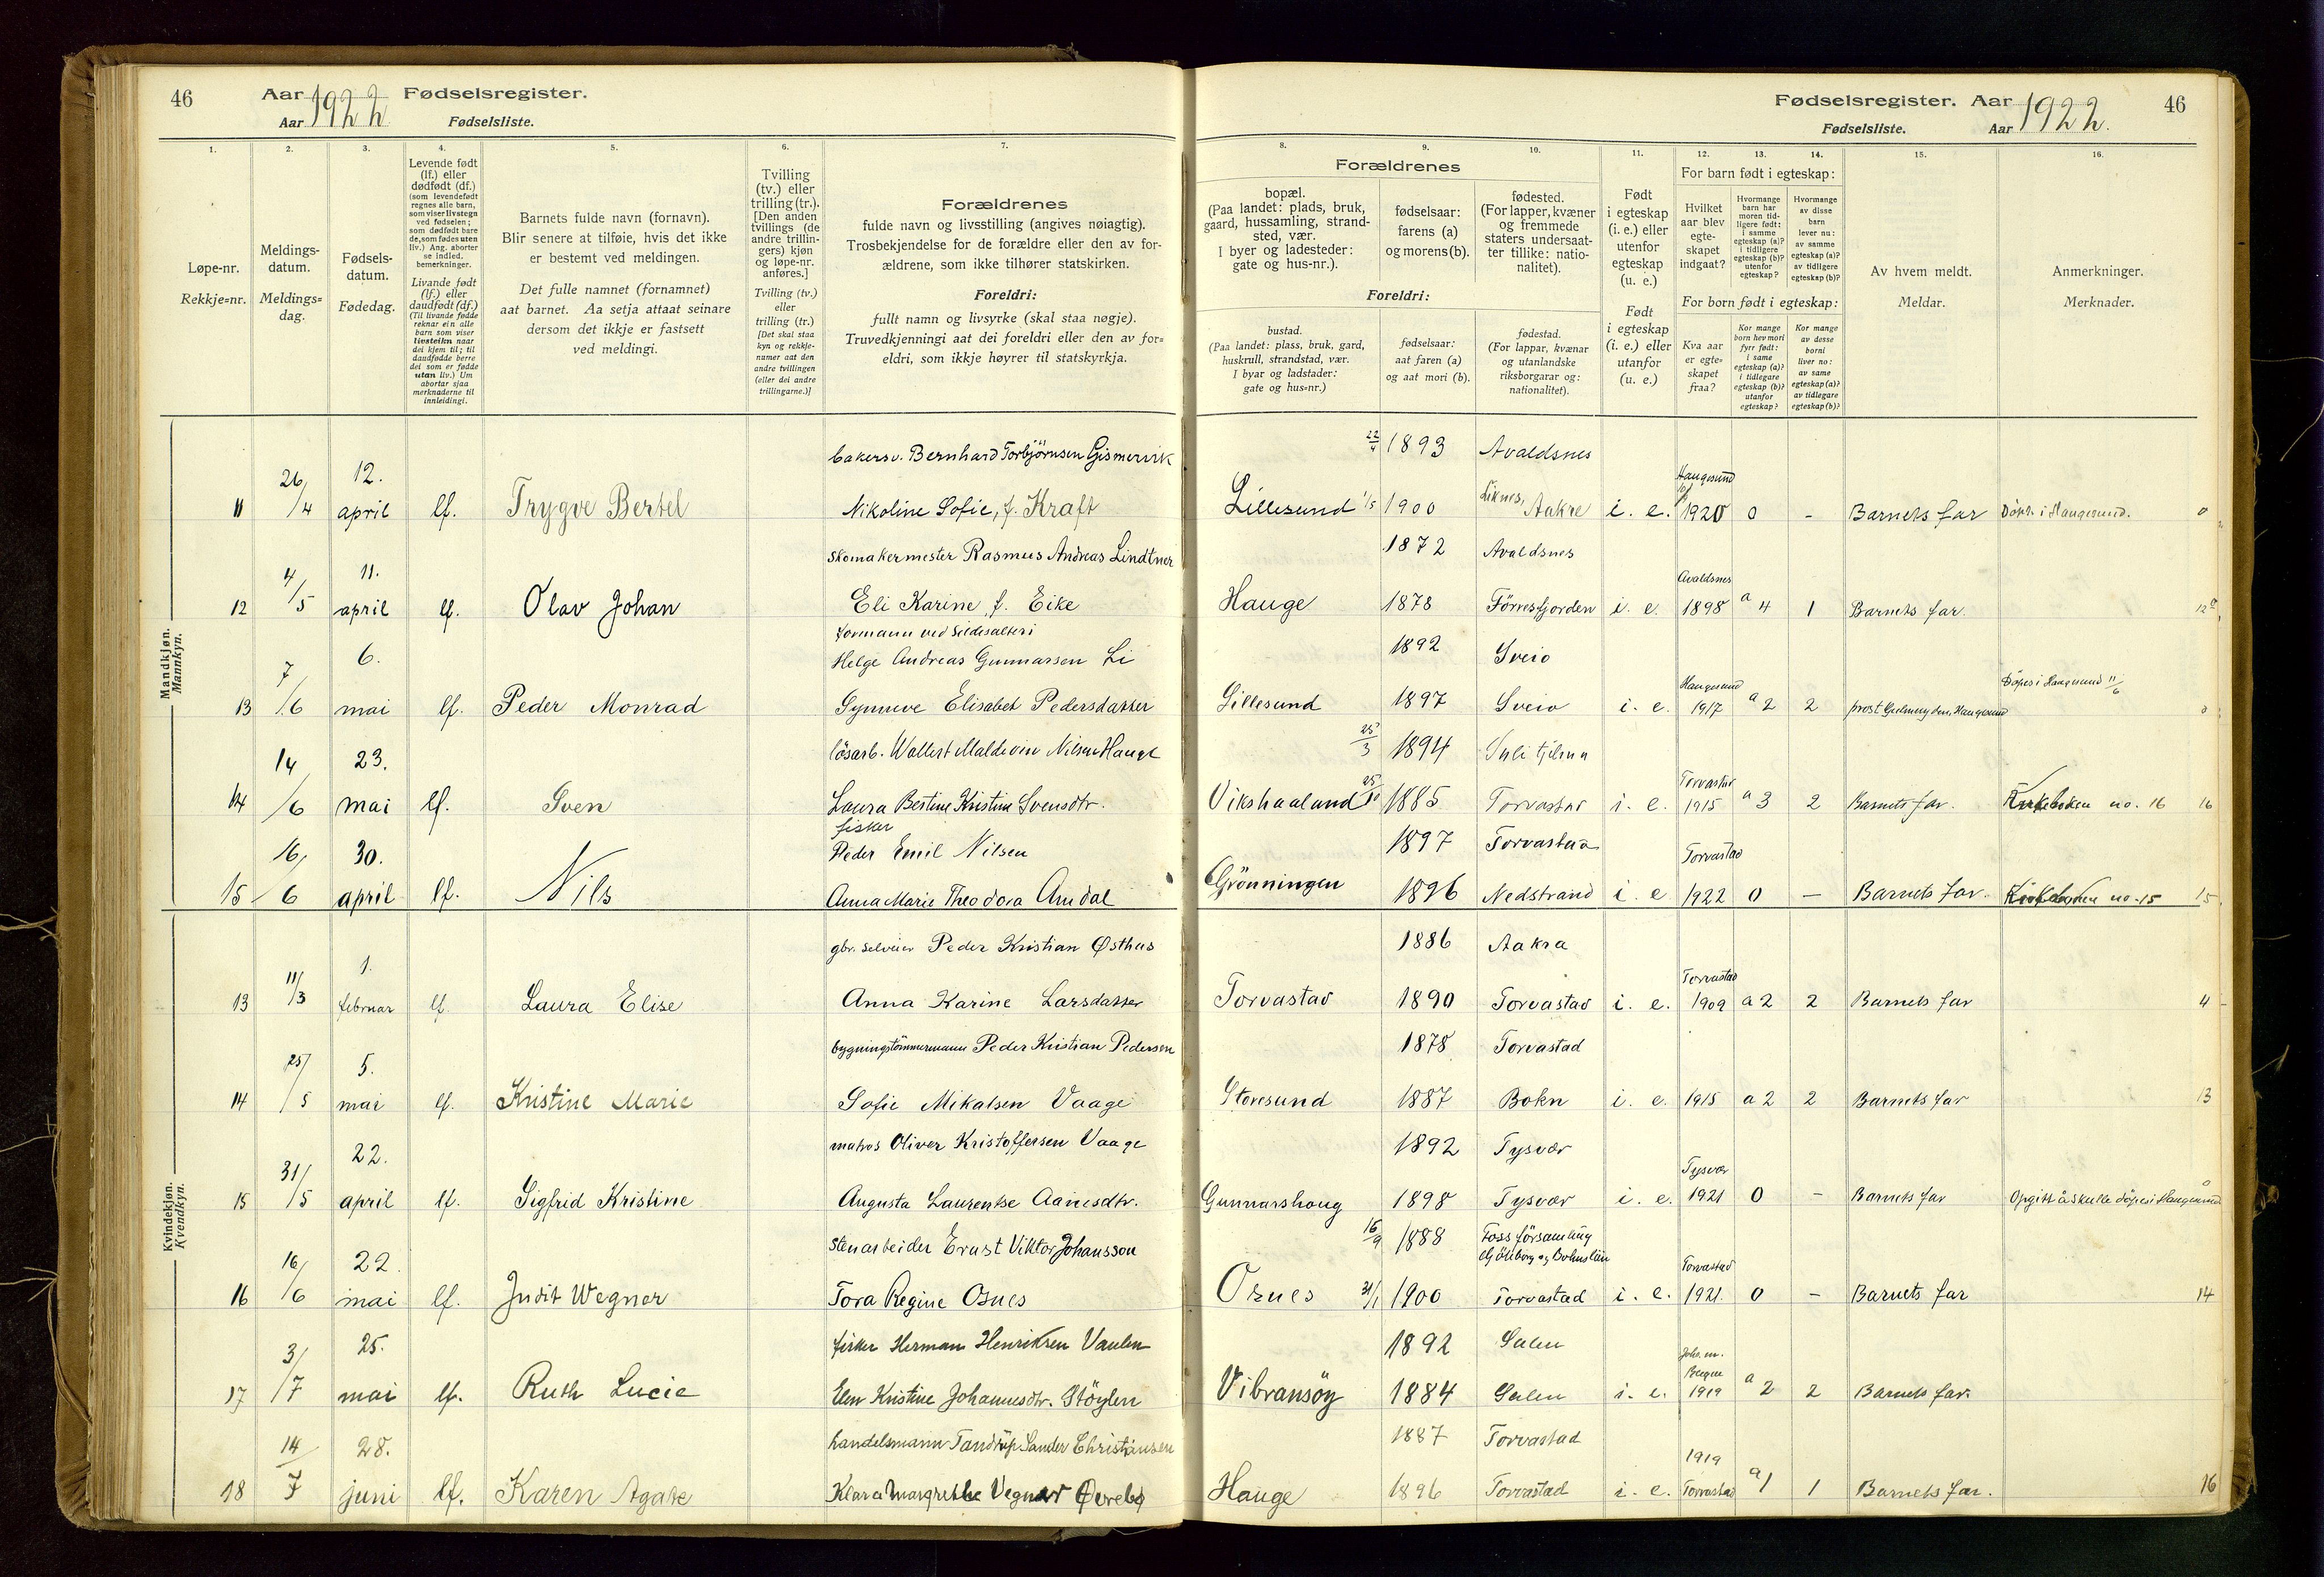 46 Aar 1922 Fødselsregister.
Aar Fødselsliste.
1. 2. 3. 4. 5. 6. 7.
Løpe-nr.
Rekkje=nr.
Meldings-
datum.
Meldings=
dag.
Fødsels-
datum.
Fødedag.
Levende født
(lf.) eller
dødfødt (df.)
(som levendefødt
regnes alle barn,
som viser livstegn
ved fødselen;
som dødfødt bare
de, som fødes uten
liv.) Ang. aborter
se indled.
bemerkninger.
Livande født
(lf.) eller
daudfødt (df.)
(Til livande fødde
reknar ein alle
barn som viser
livsteikn naar
dei kjem til; til
daudfødde berre
dei som er fødde
utan liv.) Um
abortar sjaa
merknaderne til
innleidingi.
Barnets fulde navn (fornavn).
Blir senere at tilføie, hvis det ikke
er bestemt ved meldingen.
Det fulle namnet (fornamnet)
aat barnet. Aa setja attaat seinare
dersom det ikkje er fastsett
ved meldingi.
Tvilling
(tv.) eller
trilling (tr.).
[Den anden
tvillings (de
andre trillin-
gers) kjøn
og løpe-nr.
anføres.]
Tvilling (tv.)
eller
trilling (tr.)
[Det skal staa
kyn og rekkje-
numer aat den
andre tvillingen
(eller dei andre
trillingarne.)]
Forældrenes
fulde navn og livsstilling (angives nøiagtig).
Trosbekjendelse for de forældre eller den av for-
ældrene, som ikke tilhører statskirken.
Foreldri:
fullt namn og livsyrke (skal staa nøgje).
Truvedkjenningi aat dei foreldri eller den av for=
eldri, som ikkje høyrer til statskyrkja.
Mandkjøn.
Mannkyn.
bakersv. Bernhard Torbjörnsen Gismervik
11 26/4 12. april lf. Trygve Bertel Nikoline Sofie, f. Kraft
skomakermester Rasmus Andreas Lindtner
12 4/5 11. april lf. Olav Johan Eli Karine f. Eike
formann ved sildesalteri
Helge Andreas Gunnarsen Li
13 7/6 6. mai lf. Peder Monrad Synneve Elisabet Pedersdatter
lösarb. Wollert Maldevin Nilsen Hauge
14 14/6 23. mai lf. Sven Laura Bertine Kristine Svensdtr.
fisker
Peder Emil Nilsen
15 16/6 30. april lf. Nils Anna Marie Theodora Amdal
Kvindekjøn.
Kvendkyn.
gbr. selveier Peder Kristian Østhus
13 11/3 1. februar lf. Laura Elise Anna Karine Larsdatter
bygningstömmermann Peder Kristian Pedersen
14 25/5 5. mai lf. Kristine Marie Sofie Mikalsen Vaage
matros Oliver Kristoffersen Vaage
15 31/5 22. april lf. Sigfrid Kristine Augusta Laurentse Aanesdtr.
stenarbeider Ernst Viktor Johansson
16 16/6 22. mai lf. Judit Wegner Tora Regine Osnes
fisker Herman Henriksen Vaulen
17 3/7 25. mai lf. Ruth Lucie Elen Kristine Johannesdtr. Stöylen
handelsmann Tandrup Sander Christiansen
18 14/7 28. juni lf. Karen Agate Klara Margrethe Vegner Øvrebø
Fødselsregister. Aar 1922. 46
Fødselsliste. Aar
8. 9. 10. 11. 12. 13. 14. 15. 16.
Forældrenes
bopæl.
(Paa landet: plads, bruk,
gaard, hussamling, strand-
sted, vær.
I byer og ladesteder:
gate og hus-nr.).
fødselsaar:
farens (a)
og morens (b).
fødested.
(For lapper, kvæner
og fremmede
staters undersaat-
ter tillike: natio-
nalitet).
Foreldri:
bustad.
(Paa landet: plass, bruk, gard,
huskrull, strandstad, vær.
I byar og ladstader:
gate og hus-nr.)
fødselsaar:
aat faren (a)
og aat mori (b).
fødestad.
(For lappar, kvænar
og utanlandske
riksborgarar og:
nationalitet).
Født
i egteskap
(i. e.) eller
utenfor
egteskap
(u. e.)
Født
i egteskap
(i. e.) eller
utanfor
(u. e.)
For barn født i egteskap:
Hvilket
aar blev
egte-
skapet
indgaat?
Hvormange
barn har
moren tid-
ligere født:
i samme
egteskap (a)?
i tidligere
egteskap (b)?
utenfor
egteskap?
Hvormange
av disse
barn
lever nu:
av samme
egteskap (a)?
av tidligere
egteskap (b)?
For born født i egteskap:
Kva aar
er egte=
skapet
fraa?
Kor mange
born hev mori
fyrr født:
i same
egteskap (a)?
i tidlegare
egteskap (b)?
utanfor
egteskap?
Kor mange
av desse
borni
liver no:
av same
egteskap (a)?
av tidlegare
egteskap (b)?
Av hvem meldt.
Meldar.
Anmerkninger.
Merknader.
22/4 1893 Avaldsnes
Lillesund 1/5 1900 Liknes, Aakre i. e. Haugesund 1920 0 - Barnets far Döpt i Haugesund. 0
1872 Avaldsnes
Hauge 1878 Förresfjorden i. e. Avaldsnes 1898 a 4 1 Barnets far. 12
1892 Sveio
Lillesund 1897 Sveio i. e. Haugesund 1917 a 2 2 prost Haugesund Döpes i Haugesund 11/6 0
25/3 1894 Sulitjelma
Vikshaaland 1885 Torvastad i. e. Torvastad 1915 a 3 2 Barnets far. Kirkeboken no. 16 16
1897 Torvastad
Grönningen 1896 Nedstrand i. e. Torvastad 1922 0 — Barnets far. Kirkeboken no. 15 15
1886 Aakra
Torvastad 1890 Torvastad i. e. Torvastad 1909 a 2 2 Barnets far 4
1878 Torvastad
Storesund 1887 Bokn i. e. 1915 a 2 2 Barnets far 13
1892 Tysvær
Gunnarshaug 1898 Tysvær i. e. Tysvær 1921 0 - Barnets far Opgitt å skulle döpes i Haugesund 0
16/9 1888 Foss församling
Göteborg og Bohuslän
Osnes 31/1 1900 Torvastad i. e. Torvastad 1921. 0 - Barnets far 14
1892 Sulen
Vibransöy 1884 Sulen i. e. Bergen 1919 a 2 2 Barnets far.
1887 Torvastad
Hauge 1896 Torvastad i. e. 1919 Torvastad a 1 1 Barnets far. 16